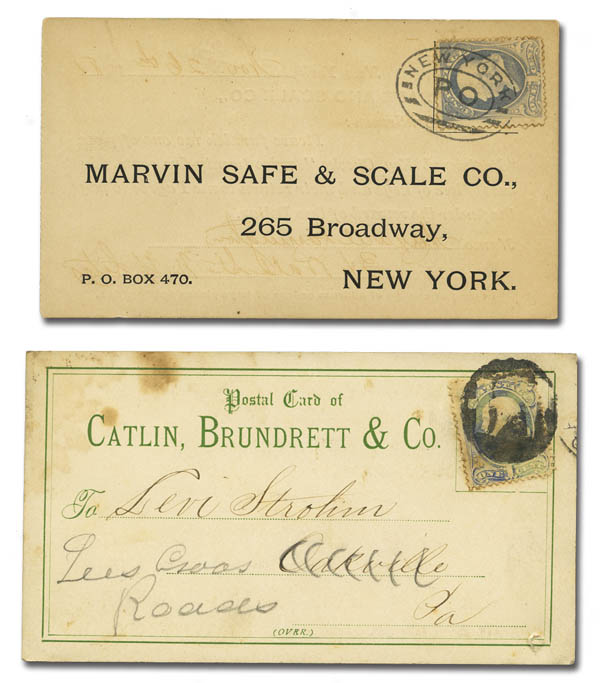 NEW YORK
P O
MARVIN SAFE & SCALE CO.,
265 Broadway,
P. O. BOX 470.
NEW YORK.
Postal Card of
CATLIN, BRUNDRETT & CO.
To Levi Strohm
Lees Cross Oakville
Roads Pa
(OVER.)